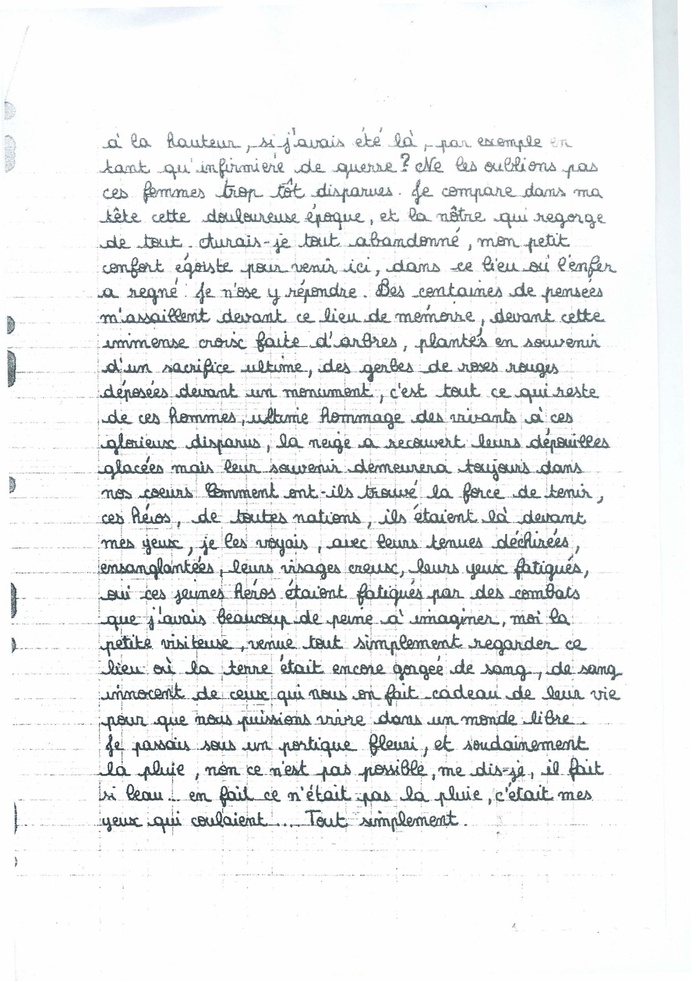 à la hauteur, si j'avais été là, par exemple en
tant qu'infirmière de guerre ? Ne les oublions pas
ces femmes trop tôt disparues. Je compare dans ma
tête cette douloureuse époque, et la nôtre qui regorge
de tout. Aurais-je tout abandonné, mon petit
confort égoiste pour venir ici, dans ce lieu où l'enfer
a regné. Je n'ose y répondre. Des centaines de pensées
m'assaillent devant ce lieu de mémoire, devant cette
immense croix faite d'arbres, plantés en souvenir
d'un sacrifice ultime, des gerbes de roses rouges
déposées devant un monument, c'est tout ce qui reste
de ces hommes, ultime hommage des vivants à ces
glorieux disparus, la neige a recouvert leurs dépouilles
glacées mais leur souvenir demeurera toujours dans
nos coeurs Comment ont-ils trouvé la force de tenir,
ces héros, de toutes nations, ils étaient là devant
mes yeux, je les voyais, avec leurs tenues déchirées,
ensanglantées, leurs visages creux, leurs yeux fatigués,
oui ces jeunes héros étaient fatigués par des combats
que j'avais beaucoup de peine à imaginer, moi la
petite visiteuse, venue tout simplement regarder ce
lieu où la terre était encore gorgée de sang, de sang
innocent de ceux qui nous on fait cadeau de leur vie
pour que nous puissions vivre dans un monde libre.
Je passais sous un portique fleuri, et soudainement
la pluie, non ce n'est pas possible, me dis-je, il fait
si beau... en fait ce n'était pas la pluie, c'était mes
yeux qui coulaient .... Tout simplement.